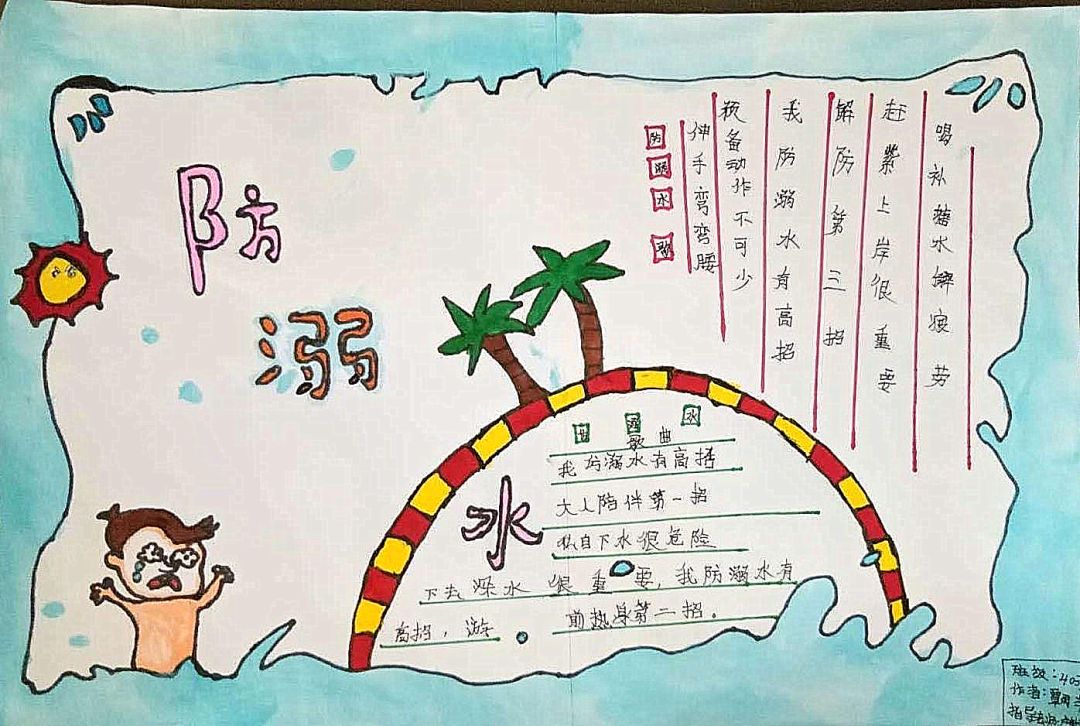 防
溺
水
防溺水歌
伸手弯弯腰
预备动作不可少
我防溺水有高招
解防第三招
赶紧上岸很重要
喝补糖水解疲劳
水
歌曲
我防溺水有高招
大人陪伴第一招
私自下水很危险
下去深水很重要，我防溺水有
高招，游前热身第二招。
班级：405
作者：覃
指导